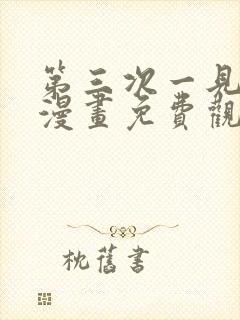 第三次一見
漫畫免費觀
枕舊書